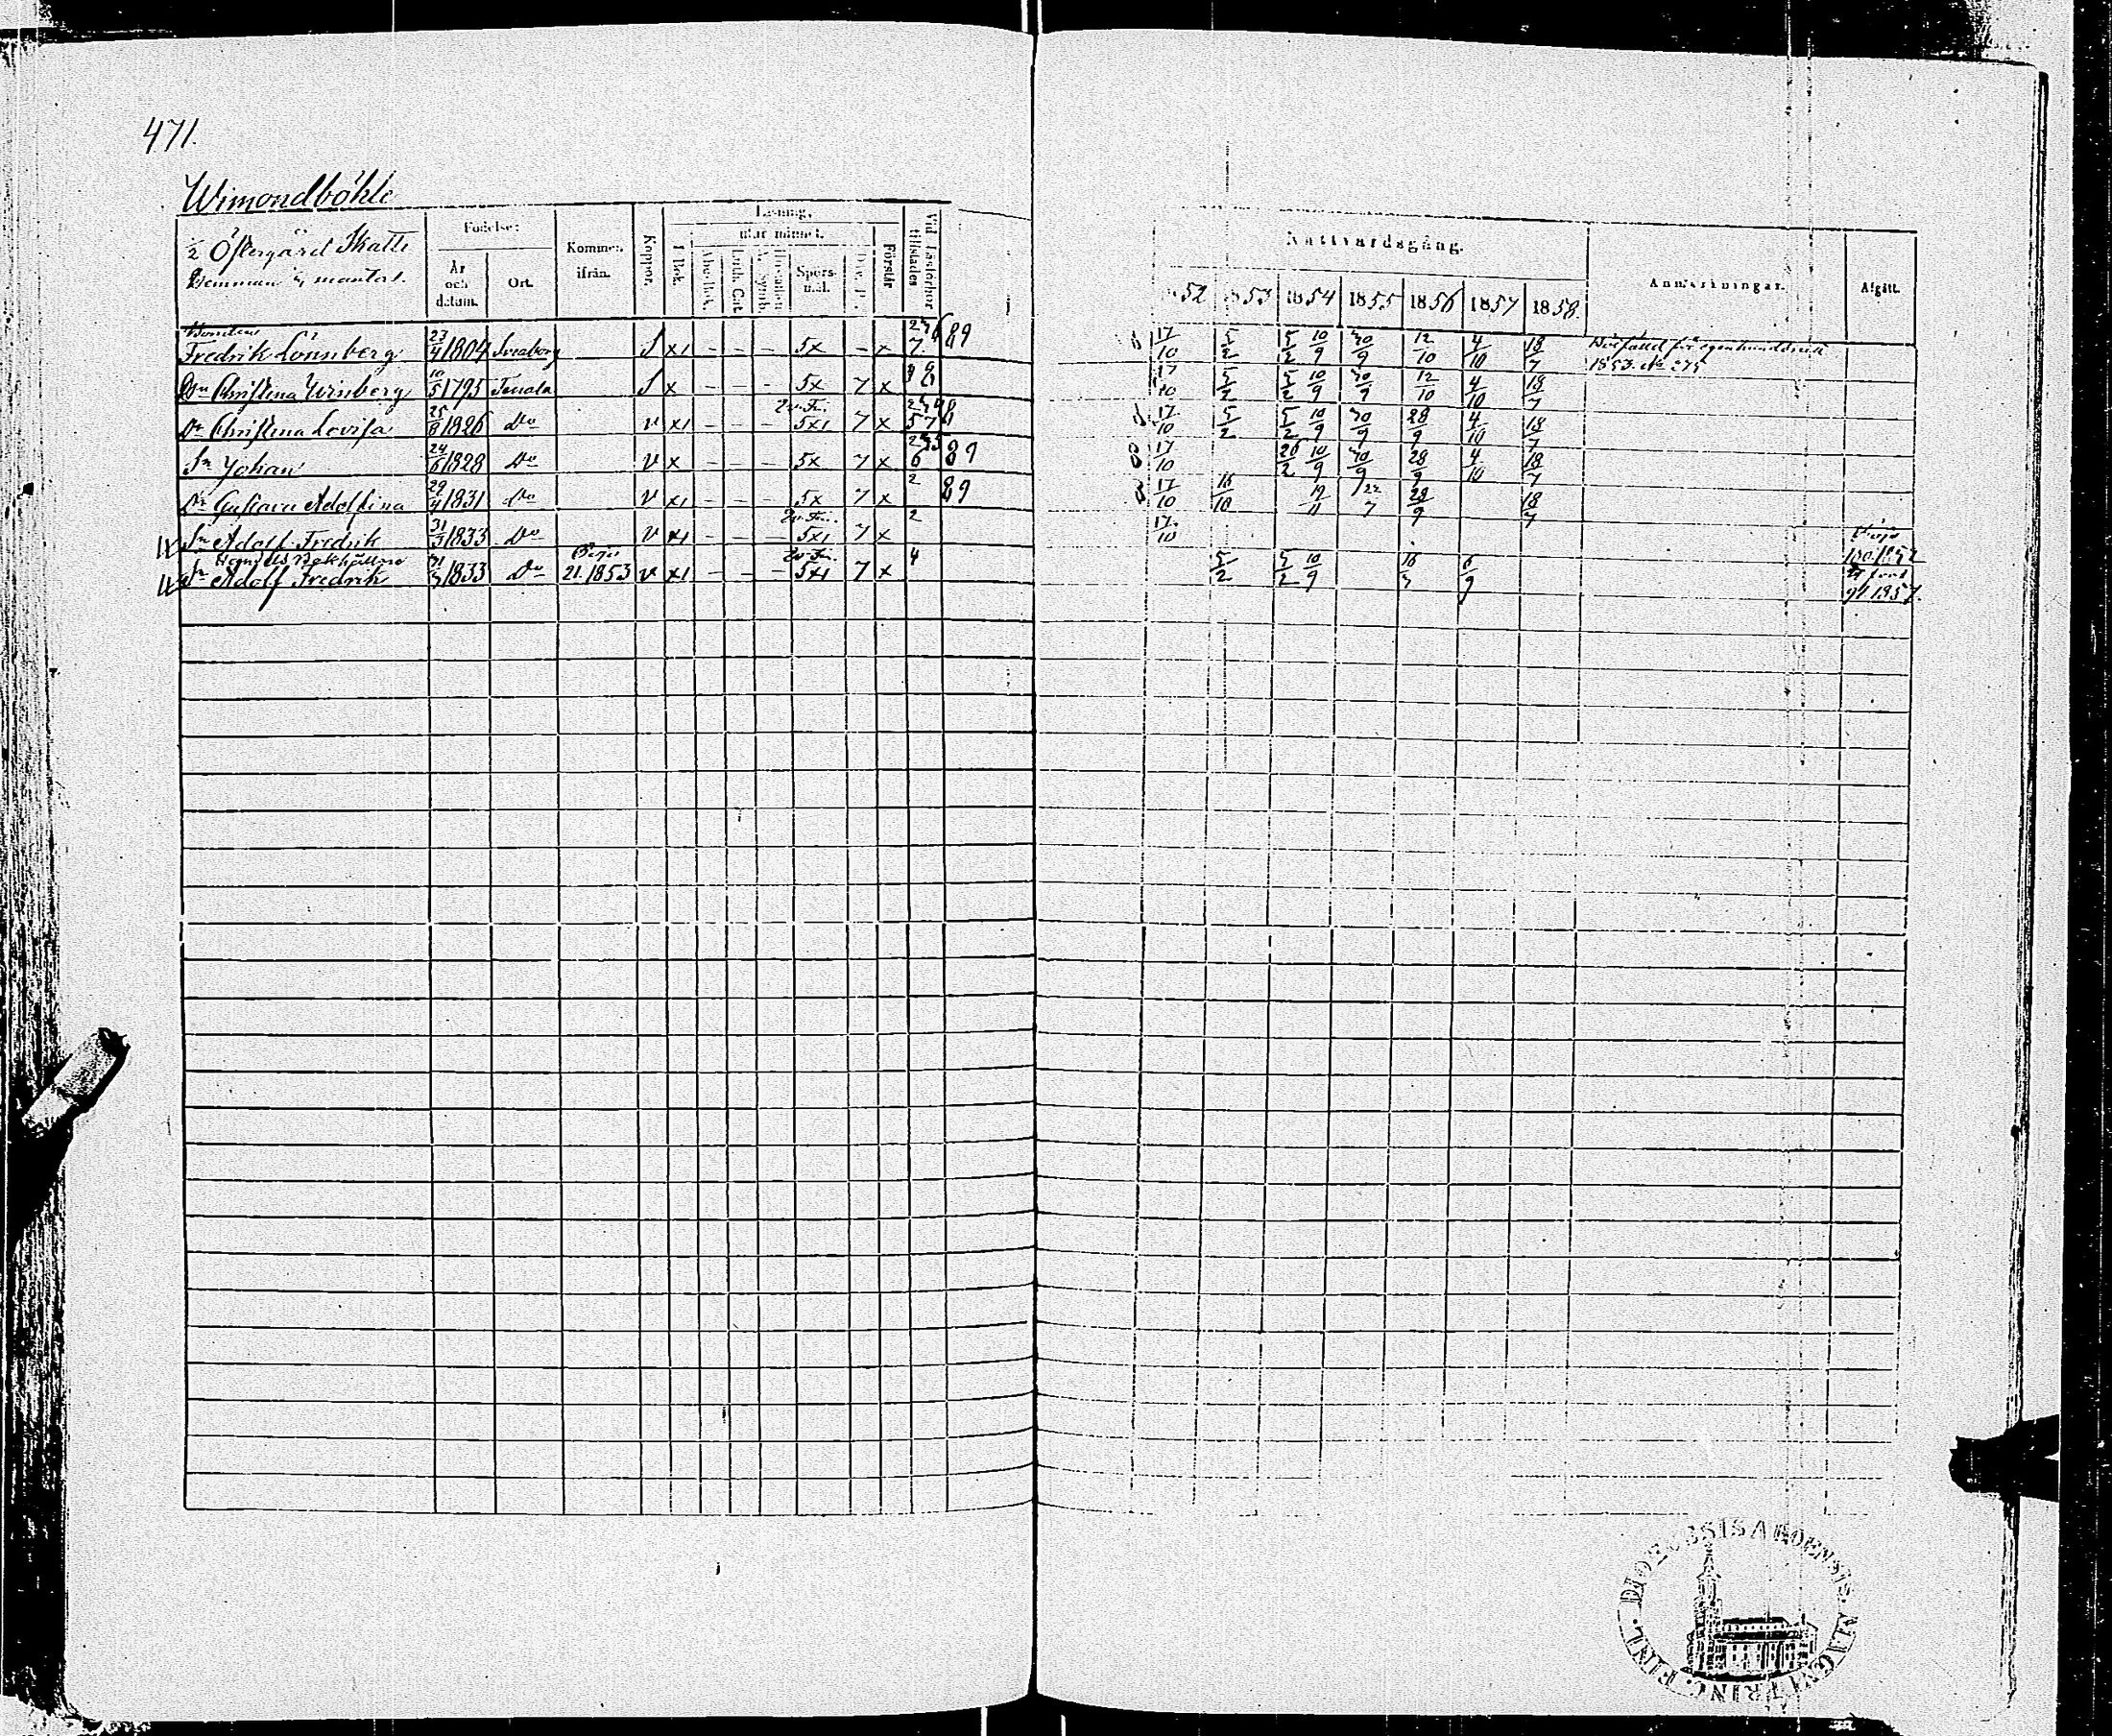 471.
Wimondböhle
1/2 Östergård Skatte
Hemman 1/4 mantal.
Födelse:
År och datum.
Ort.
Kommen ifrån.
Koppor.
Läsning,
utur minnet.
I Bok.
Abc-Bok.
Luth. Cat.
A. Symb.
Spörs-mål.
Förstår
Vid Läsförhör tillstädes
Nattvardsgång.
52 53 1854 1855 1856 1857 1858
Anmärkningar.
Afgått.
Bonden
Fredrik Lönnberg 23/4 1804 Sveaborg S x1 - - - 5x - x 7 89 17/10 5/2 5/2 10/9 30/9 12/10 4/10 18/7
1853
Christina Winberg 10/5 1795 Tenala S x - - - 5x 7 x 17/10 5/2 5/2 10/9 30/9 12/10 4/10 18/7
Dr Christina Lovisa 25/8 1826 Do v x1 - - - 5x1 7 x 57 17/10 5/2 5/2 10/9 30/9 28/9 4/10 18/7
Sn Johan 24/6 1828 Do v x - - - 5x 7 x 6 89 17/10 26/2 10/9 30/9 28/9 4/10 18/7
Dr Gustava Adolfina 29/4 1831 Do v x1 - - - 5x 7 x 2 89 17/10 16/10 19/11 22/7 28/9 18/7
Sn Adolf Fredrik 31/3 1833 Do v x1 - - - 5x1 7 x 2 17/10
Sn Adolf Fredrik 31/3 1833 Do 21.1853 v x1 - - - 5x1 7 x 4 5/2 5/2 10/9 6/9
91 1857.
DIOECESIS ABOENSIS
SIGNETRING. FINL.